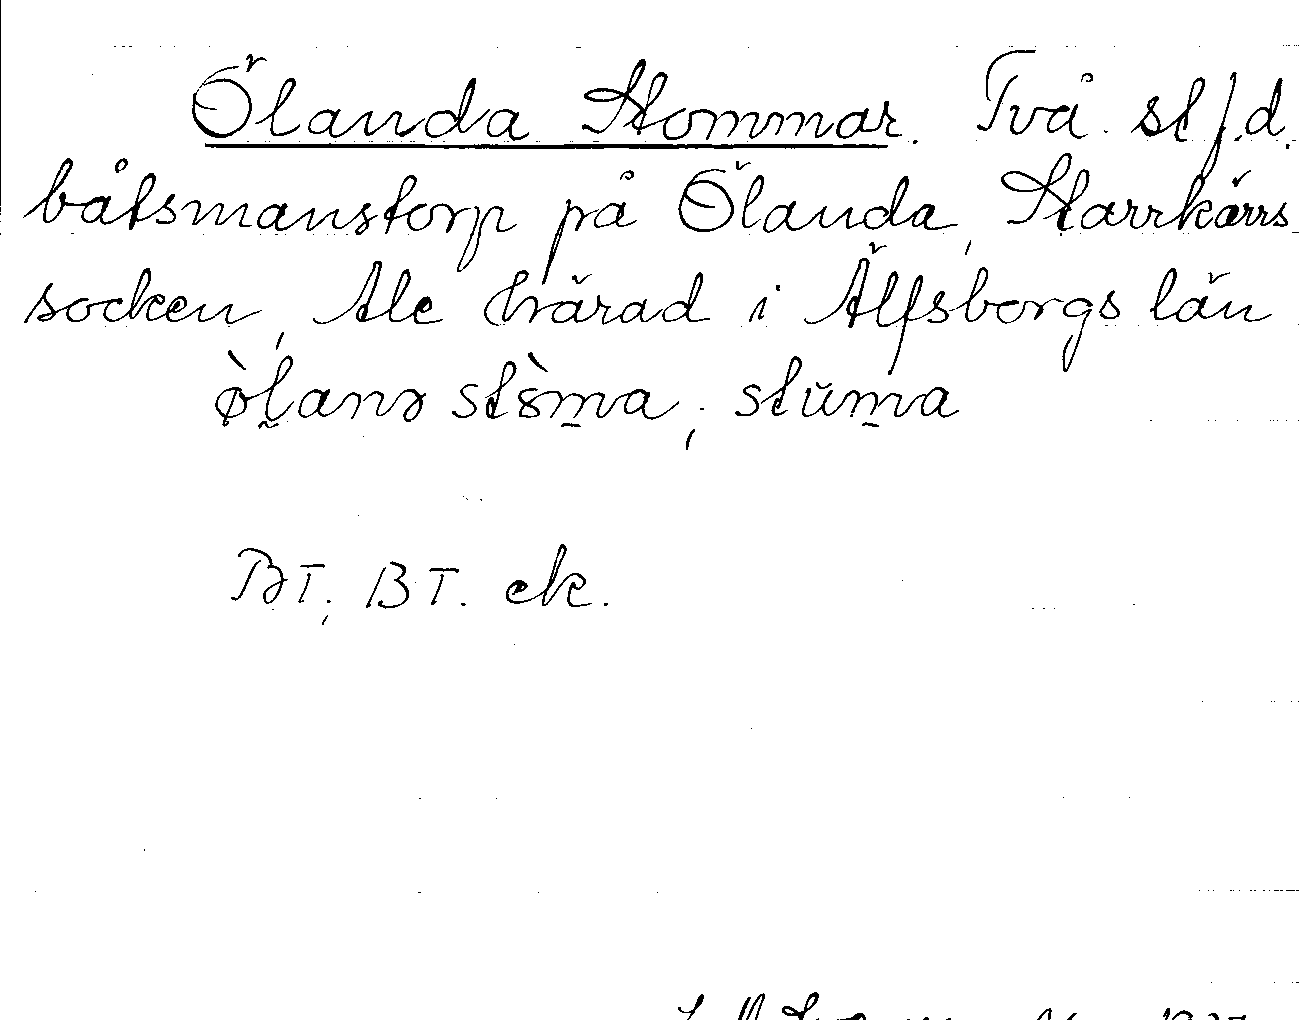 Ölanda Stommar. Två st f.d.
båtsmanstorp på Ölanda, Starrkärrs
socken, Ale härad i Älfsborgs län
òl̰anə stò̱ma, stŭm̱a
BT; BT. ek.